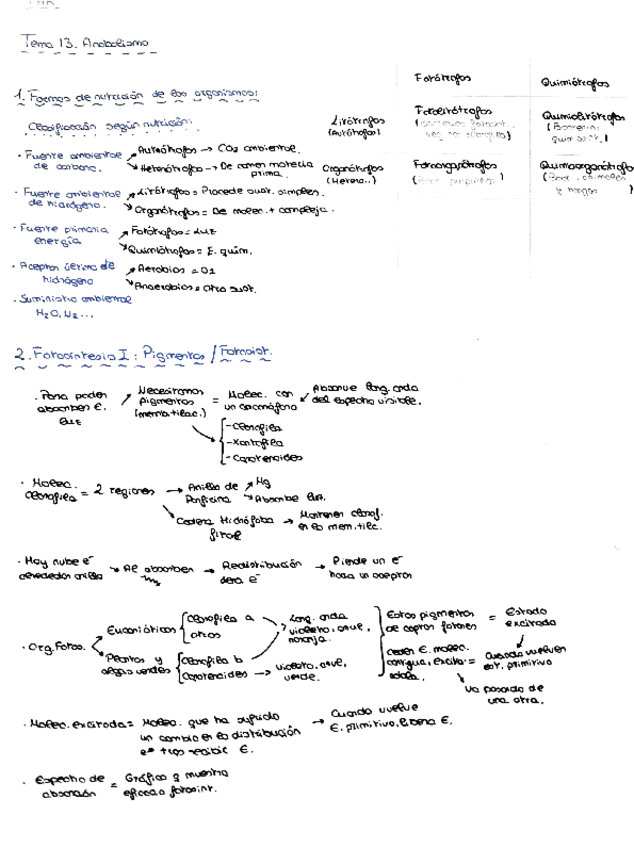 Tema 13. Anabolismo
Fotótrofos
Quimiótrofos
1. Formas de nutrición de los organismos:
Clasificación según nutrición:
Litótrofos
(Autótrofos)
Fotolitótrofos
Quimiolitótrofos
Organótrofos
(Hetero..)
Fotoorganótrofos
Quimioorganótrofos
· Fuente ambiental de carbono.
Autótrofos → CO2 ambiental.
Heterótrofos → De comer materia prima.
· Fuente ambiental de hidrógeno.
Litótrofos = Procede sust. simples.
Organótrofos = De molec. + compleja.
· Fuente primaria energía
Fotótrofos = LUZ
Quimiótrofos = E. quím.
· Aceptor último de hidrógeno
Aerobios = O2
Anaerobios = Otro sust.
· Suministro ambiental
H2O, N2 ...
2. Fotosíntesis I: Pigmentos / Fotosist.
· Para poder absorber E. luz
Necesitamos pigmentos (memb. tilac.)
= Molec. con un cromóforo
Absorve long. onda del espectro visible.
- Clorofila
- Xantofila
- Carotenoides
· Molec. Clorofila = 2 regiones
→ Anillo de Porfirina
Mg
Absorbe luz.
Cadena Hidrófoba fitol → Mantener clorof. en la mem. tilc.
· Hay nube e⁻ alrededor anillo → Al absorber → Redistribución de la e⁻ → Pierde un e⁻ hacia un aceptor
· Org. Fotos.
Eucarióticos
Clorofila a
otros
Long. onda violeta, azul, naranja.
Plantas y algas verdes
Clorofila b
Carotenoides → violeta, azul, verde.
Estos pigmentos de captar fotones = Estado excitado
Ceden E. molec. contigua, excita =
Cuando vuelven est. primitivo
Va pasando de una otra.
· Molec. excitada = Molec. que ha sufrido un cambio en la distribución e⁻ tras recibir E.
→ Cuando vuelve E. primitivo, libera E.
· Espectro de absorción = Gráfico q muestra eficacia fotosínt.